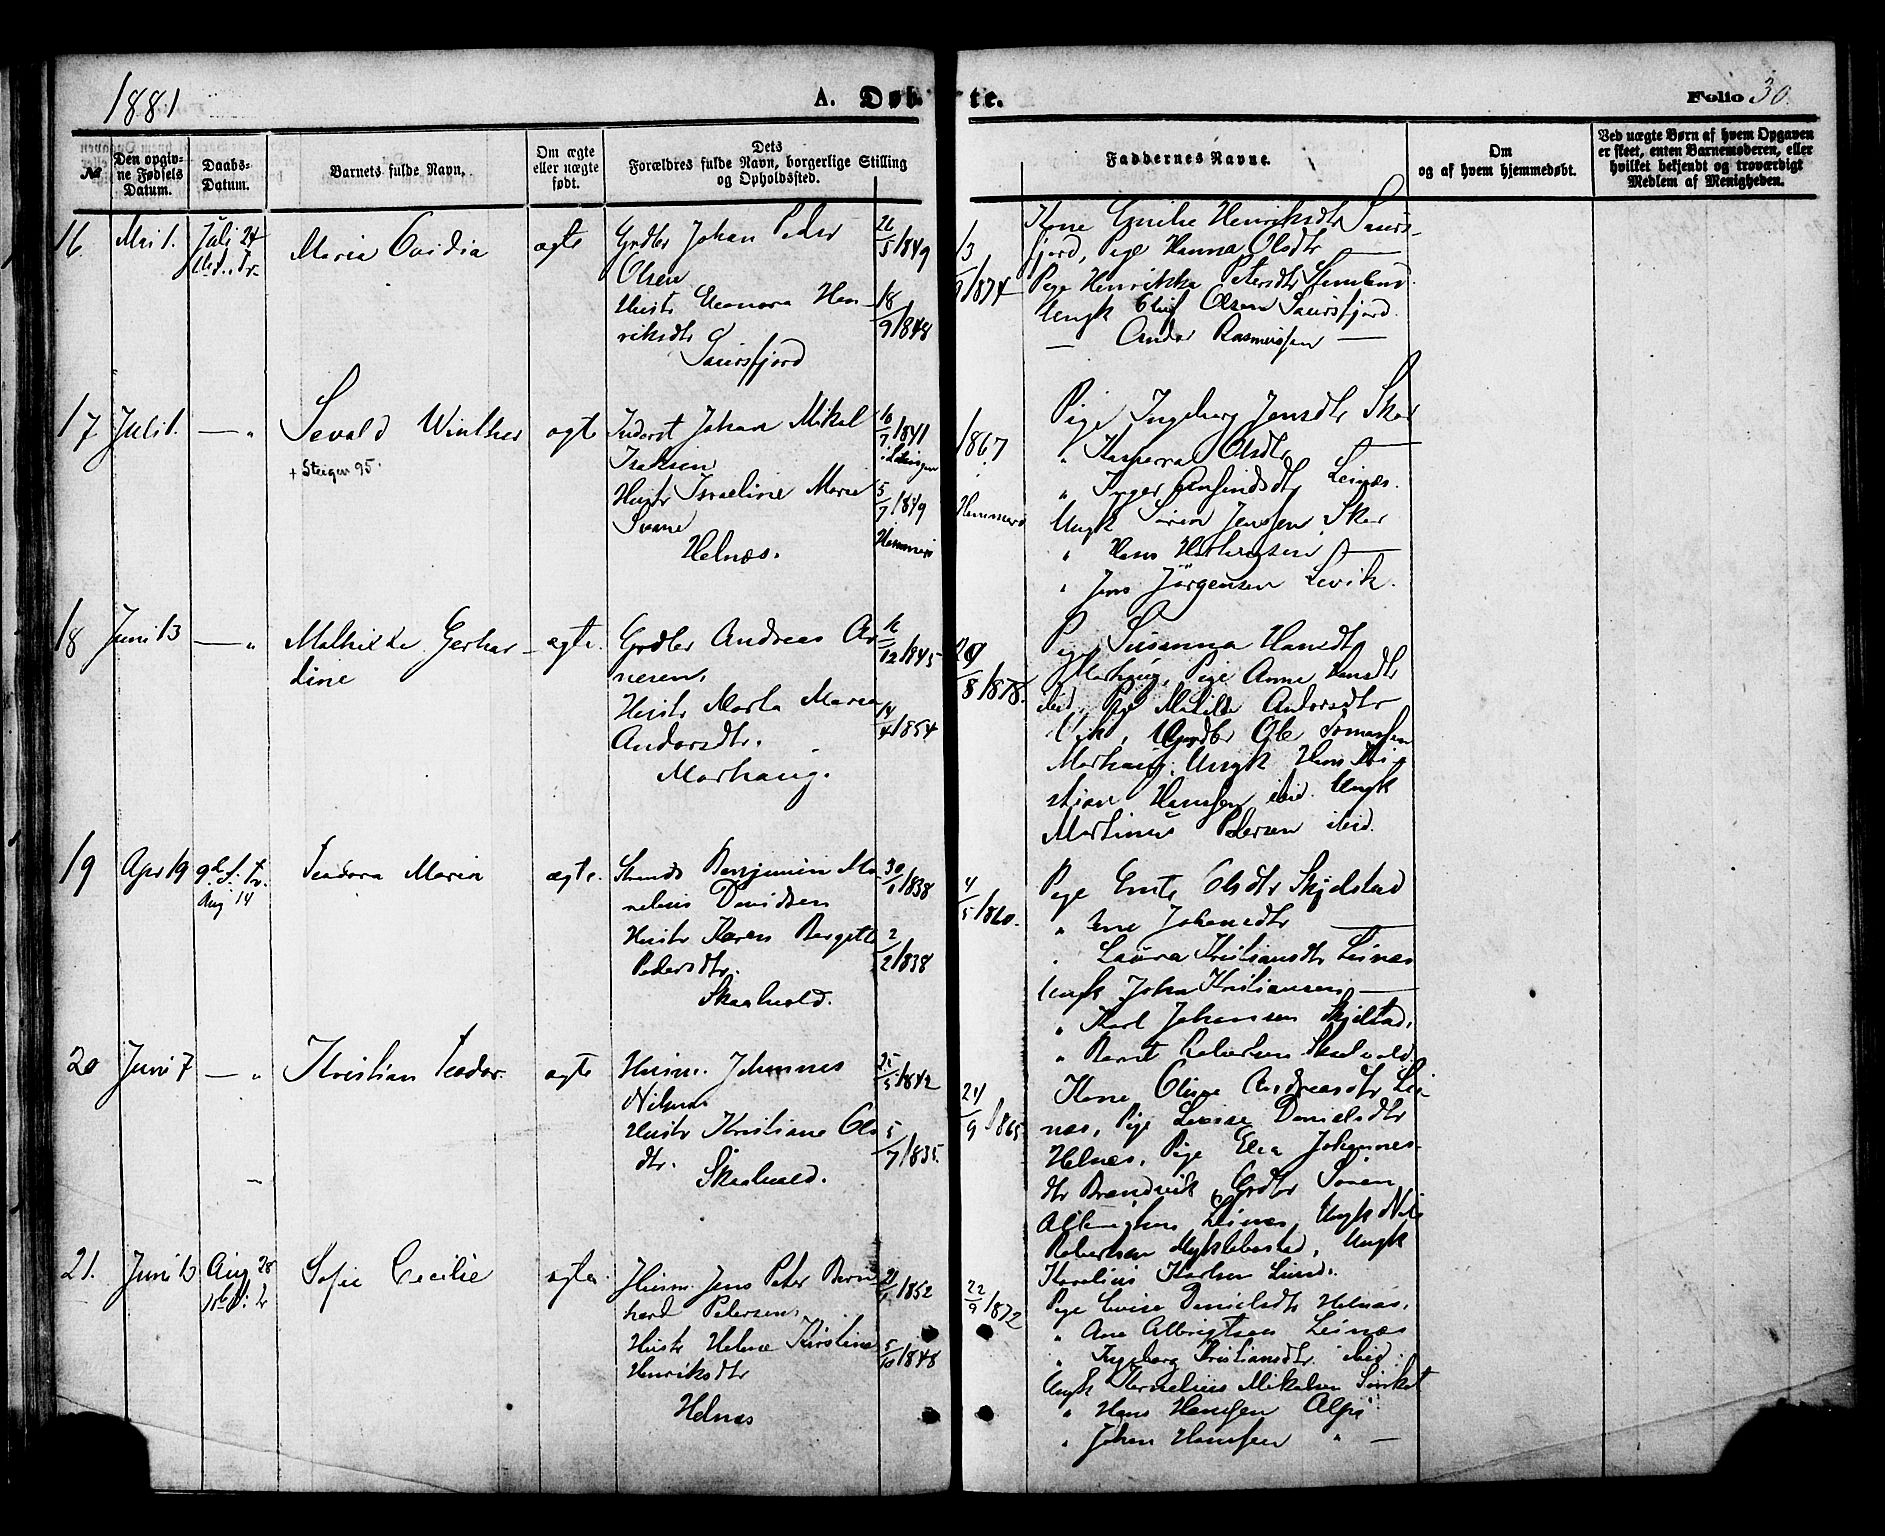 1881
A. Døbte.
Folio 30.
№
Den opgivne Fødsels Datum.
Daabs-Datum.
Barnets fulde Navn.
Om ægte eller uægte født.
Dets Forældres fulde Navn, borgerlige Stilling og Opholdssted.
Faddernes Navne.
Om og af hvem hjemmedøbt.
Ved uægte Børn af hvem Opgaven er skeet, enten Barnemoderen, eller hvilket bekjendt og troværdigt Medlem af Menigheden.
16. Mai 1. Juli 24
Maria Ovidia
ægte
Grdbr Johan Peder
Olsen
26/5 1849
Hustr Eleonora Hen-
riksdtr
18/9 1848
Saursfjord
1874
Kone Emilie Henriksdtr Saurs-
fjord, Pige Hanna Olsdtr
Pige Henrikka Petersdtr
Ungk Olsen Saursfjord.
— Andor Rasmussen —
17 Juli 1. — "
Sevald Winther
+ Steigen 95.
ægte
Inderst Johan Mikal
Isaksen
16/7 1841
Hustr Israeline Marie
Svane
5/7 1849
Helnæs.
1867
Pige Ingeborg Jensdtr Skor
" Olsdtr —
" Leinæs.
Ungk Sören Jenssen Skor
" Hans —
" Jens Jörgensen Levik.
18 Juni 13 — "
Mathilde Gerhar-
dine
ægte.
Grdbr Andreas Ar-
nesen.
16/12 1845
Hustr Marta Maria
Andorsdtr.
14/4 1854
Marhaug.
8/1878.
Pige Susanna Hansdtr
Marhaug, Pige Anne Hansdtr
ibid, Pige Matilde Andorsdtr
Vik, Grdbr Ole Tomassen
Marhaug, Ungk Hans Kri-
stian Hansen ibid. Ungk
Martinus Pedersen ibid.
19 Apr 19 9de S. Tr.
Aug 14
Teodora Maria
ægte.
Benjamin
Davidsen
30/ 1838
Hustr Karen Bergitte
Pedersdtr.
2/2 1838
Skaalvold.
4/5 1860.
Pige Olsdtr Skjelstad
" Ane Johansdtr —
" Laura Kristiansdtr Leinæs
Ungk Johan Kristiansen —
" Karl Johansen Skjelstad,
" Bernt Skaalvold.
20 Juni 7 — "
Kristian Teodor.
ægte
Husm. Johannes
Nilsen
25/5 1842
Hustr Kristiane Ols-
dtr.
5/7 1835.
Skaalvold.
24/9 1865
Kone Oline Andreasdtr Lei-
næs, Pige Lovise Danielsdtr
Helnæs, Pige Elen Johannes-
dtr Brandvik, Grdbr Sören
Albrigtsen Leinæs, Ungk Nils
Robertsen Myklebostad, Ungk
Karelius Karlsen Lund.
21. Juni 13 Aug 28
Sofie Cecilie
ægte
Husm. Jens Peter Bern-
hard Pedersen
1852
Hustr Helene Kirstine
Henriksdtr
5/10 1848
Helnæs
22/9 1872
Pige Lovise Danielsdtr Helnæs,
" Ane Albrigtsen Leinæs
" Ingeborg Kristiansdtr ibid.
Ungk Kornelius Mikalsen
" Hans Hansen
" Johan Hansen " —